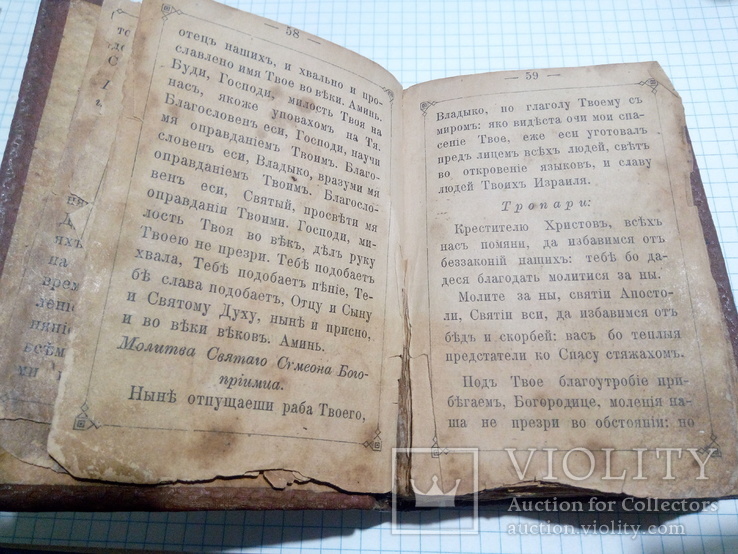 — 58 —
отецъ нашихъ, и хвально и про-
славлено имя Твое во вѣки. Аминь.
Буди, Господи, милость Твоя на
насъ, якоже уповахомъ на Тя.
Благословенъ еси, Господи, научи
мя оправданіемъ Твоимъ. Благо-
словенъ еси, Владыко, вразуми мя
оправданіемъ Твоимъ. Благосло-
венъ еси, Святый, просвѣти мя
оправданіи Твоими. Господи, ми-
лость Твоя во вѣкъ, дѣлъ руку
Твоею не презри. Тебѣ подобаетъ
хвала, Тебѣ подобаетъ пѣніе, Те-
бѣ слава подобаетъ, Отцу и Сыну
и Святому Духу, нынѣ и присно,
и во вѣки вѣковъ. Аминь.
Молитва Святаго Сѵмеона Бого-
пріимца.
Нынѣ отпущаеши раба Твоего,
— 59 —
Владыко, по глаголу Твоему съ
миромъ: яко видѣста очи мои спа-
сеніе Твое, еже еси уготовалъ
предъ лицемъ всѣхъ людей, свѣтъ
во откровеніе языковъ, и славу
людей Твоихъ Израиля.
Тропари:
Крестителю Христовъ, всѣхъ
насъ помяни, да избавимся отъ
беззаконій нашихъ: тебѣ бо да-
деся благодать молитися за ны.
Молите за ны, святіи Апосто-
ли, Святіи вси, да избавимся отъ
бѣдъ и скорбей: васъ бо теплыя
предстатели ко Спасу стяжахомъ.
Подъ Твое благоутробіе при-
бѣгаемъ, Богородице, моленія на-
ша не презри во обстояніи: но
VIOLITY
Auction for Collectors
auction.violity.com